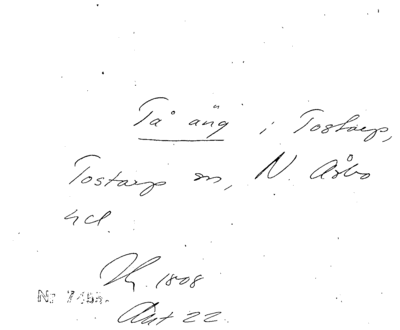 Tå äng i Tostarp,
Tostarp sn, N. Åsbo
hd.
Hy. 1808
Akt 22